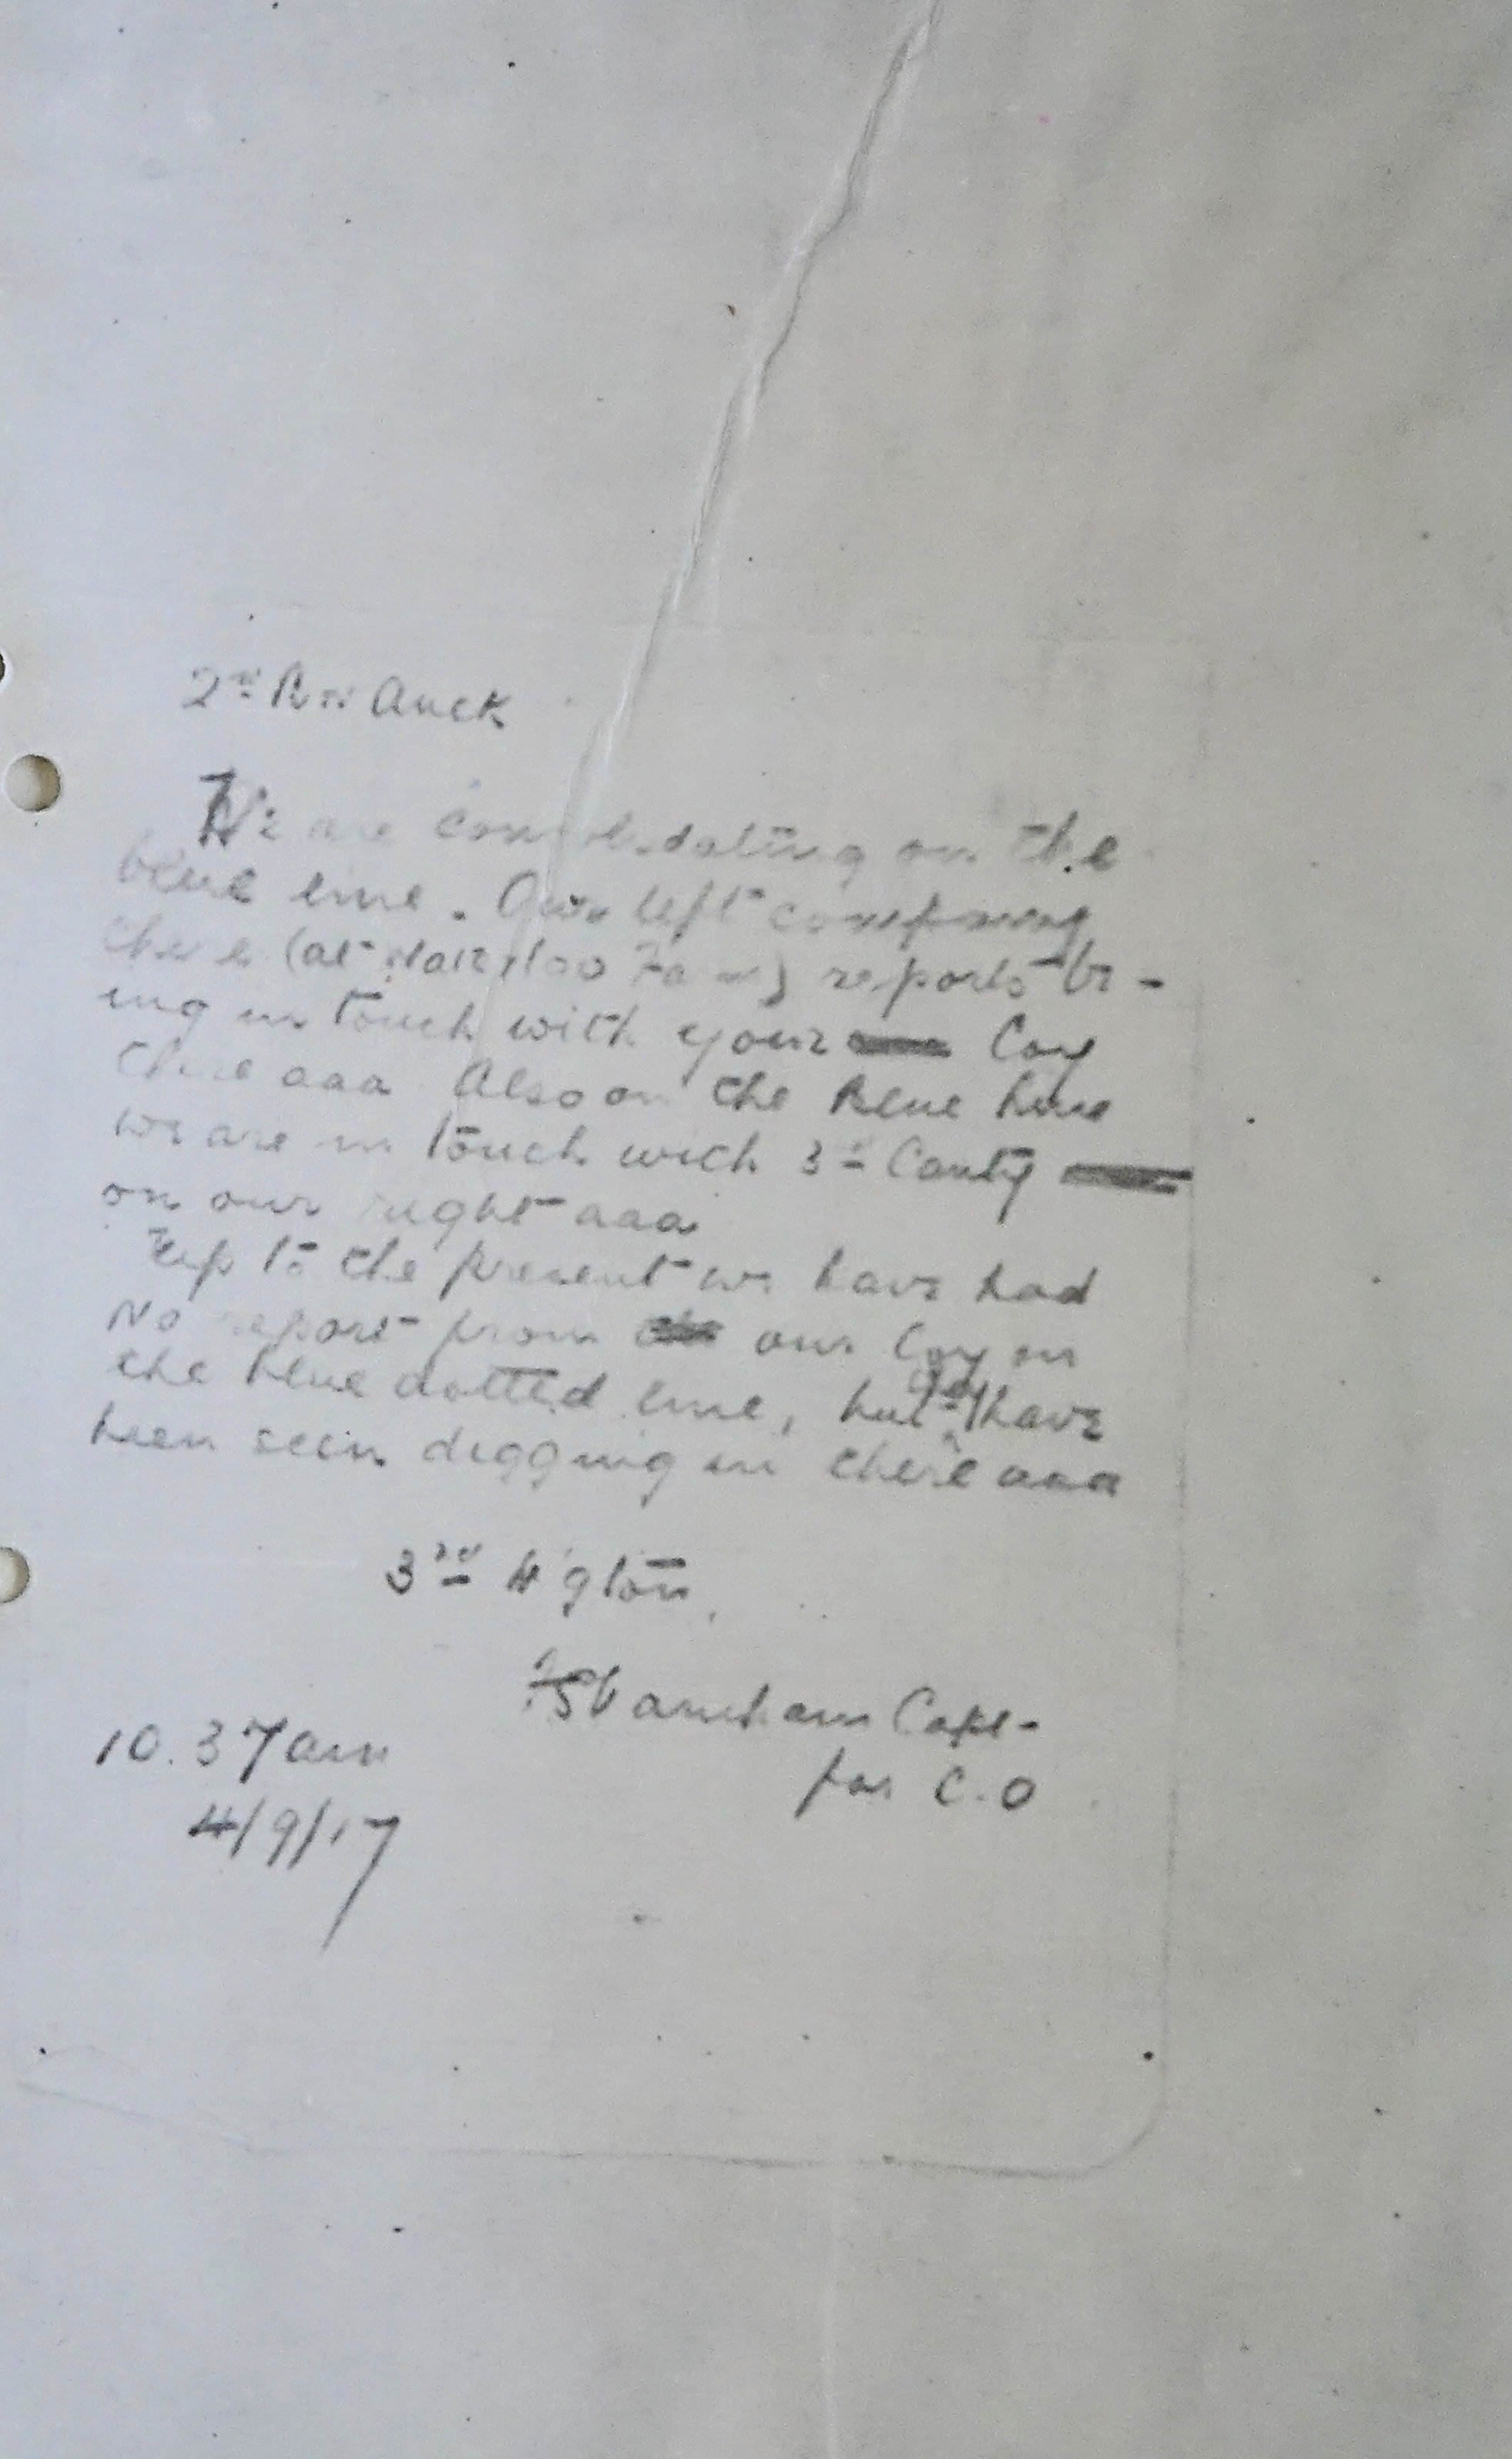 2nd Bn Auck
We are consolidating on the
blue line. Our left company
there (at Waterloo Farm) reports be-
ing in touch with your Coy
there aaa Also on the Blue line
we are in touch with 3rd Canty
on our right aaa
Up to the present we have had
No report from our Coy on
the blue dotted line, but they have
been seen digging in there aaa
3rd W'gton
Capt-
for C.O
10.37am
4/9/17